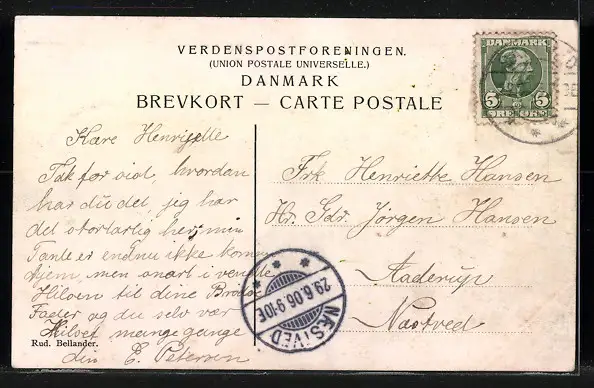 VERDENSPOSTFORENINGEN.
(UNION POSTALE UNIVERSELLE.)
DANMARK
BREVKORT — CARTE POSTALE
DANMARK
5 5
ØRE ØRE
Kære Henriette
Tak for sidst, hvordan
har du det, jeg har
det storartig her, min
Tante er endnu ikke kommen
hjem, men snart i vente
Hilsen til dine Brødre
Fader og du selv vær
Hilset mange gange
din E. Petersen
Rud. Bellander.
Frk Henriette Hansen
Hr. Gdr. Jörgen Hansen
Aaderup
Næstved
NÆSTVED
29.6.06.9-10E